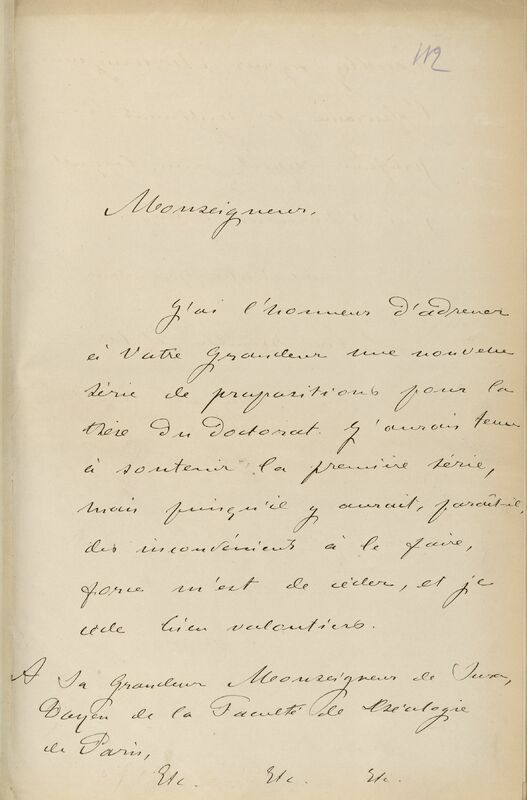 112
Monseigneur,
J'ai l'honneur d'adresser
à Votre Grandeur une nouvelle
série de propositions pour la
thèse du Doctorat. J'aurais tenu
à soutenir la première série,
mais puisqu'il y aurait, paraît-il,
des inconvénients à le faire,
force m'est de céder, et je
cède bien volontiers.
A Sa Grandeur Monseigneur de Sura,
Doyen de la Faculté de Théologie
de Paris,
Etc. Etc. Etc.